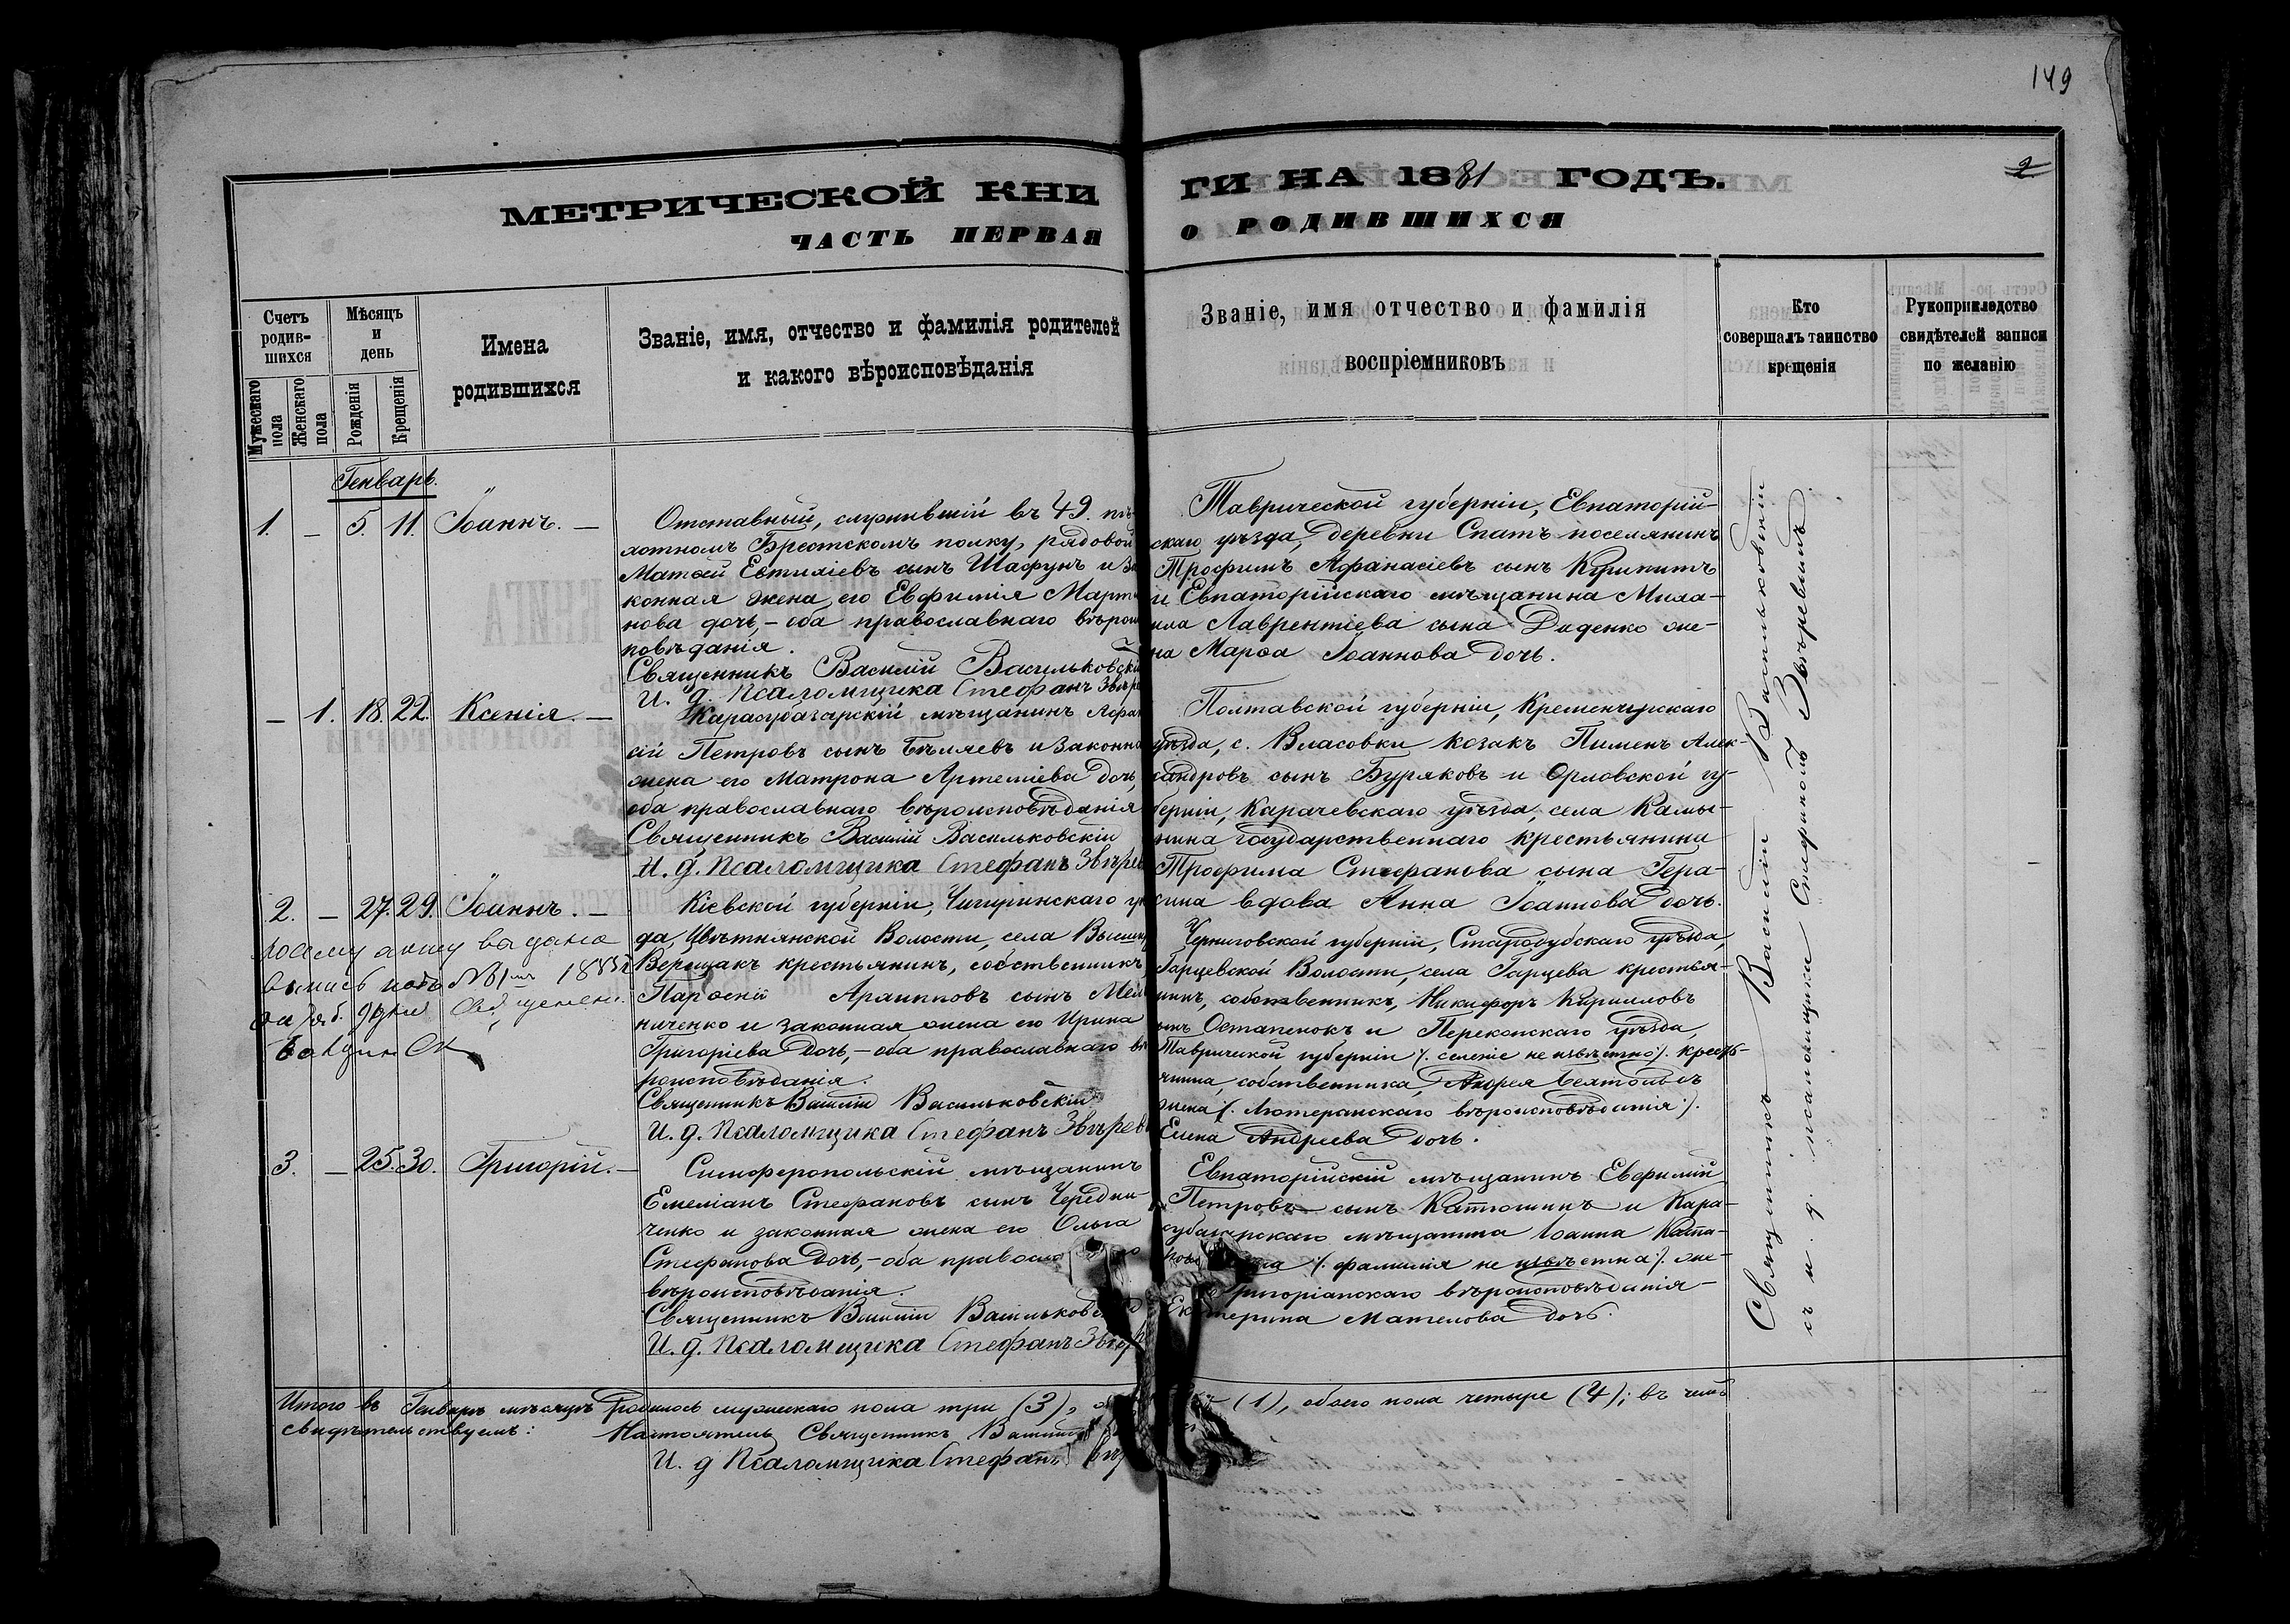 149
2
МЕТРИЧЕСКОЙ КНИ
ГИ НА 1881 ГОДЪ.
ЧАСТЬ ПЕРВАЯ
О РОДИВШИХСЯ
Счетъ родив-
шихся
Мужескаго пола
Женскаго пола
Мѣсяцъ и день
Рожденія
Крещенія
Имена
родившихся
Званіе, имя, отчество и фамилія родителей
и какого вѣроисповѣданія
Званіе, имя отчество и фамилія
воспріемниковъ
Кто
совершалъ таинство
крещенія
Рукоприкледство
свидѣтелей записи
по желанію
Генварь.
1. — 5. 11. Іоаннъ. —
Отставный, служившій въ 49. пѣ-
хотномъ Брестскомъ полку, рядовой
Матѳей Евтихіевъ сынъ Шафунъ и за
конная жена его Евфимія Март
нова дочь, – оба православнаго вѣрои
повѣданія.
Священникъ Василій Васильковскі
И. д. Псаломщика Стефанъ Звѣре
Таврической губерніи, Евпаторій-
скаго уѣзда, деревни Спатъ поселянинъ
Трофимъ Афанасіевъ сынъ
и Евпаторійскаго мѣщанина Миха-
ила Лаврентіева сына Диденко же-
на Марѳа Іоаннова дочь.
— 1. 18. 22. Ксенія. —
Карасубазарскій мѣщанинъ Афан
сій Петровъ сынъ Бѣляевъ и законна
жена его Матрона Артеміева дочь,
оба православнаго вѣроисповѣданія
Священникъ Василій Васильковскій
И. д. Псаломщика Стефанъ Звѣрев
Полтавской губерніи, Кременчугскаго
уѣзда, с. Власовки козакъ Пименъ Алек-
сандровъ сынъ Буряковъ и Орловской гу-
берніи, Карачевскаго уѣзда, села Камы-
нина государственнаго крестьянина
Трофима Стефанова сына Гера-
сина вдова Анна Іоаннова дочь.
2. — 27. 29. Іоаннъ. —
выпись подъ №
Кіевской губерніи, Чигиринскаго уѣ
да, Цвѣтнянской Волости, села
Верещакъ крестьянинъ, собственникъ,
Парѳеній Архипповъ сынъ Мел
ниченко и законная жена его Ирина
Григоріева дочь, – оба православнаго вѣ
роисповѣданія.
Священникъ Василій Васильковскій
И. д. Псаломщика Стефанъ Звѣрев
Черниговской губерніи, Стародубскаго уѣзда,
Гарцевской Волости, села Гарцева крестья-
нинъ, собственникъ, Никифоръ Кирилловъ
сынъ Остапенокъ и Перекопскаго уѣзда,
Таврической губерніи /. селеніе не извѣстно ./. кресть-
янина, собственника, Андрея
жена /. Лютеранскаго вѣроисповѣданія ./.
Елена Андреева дочь.
3. — 25. 30. Григорій. —
Симферопольскій мѣщанинъ
Емеліанъ Стефановъ сынъ Чередни-
ченко и законная жена его Ольга
Стефанова дочь, – оба правосла
вѣроисповѣданія.
Священникъ Василій Васильковскі
И. д. Псаломщика Стефанъ Звѣр
Евпаторійскій мѣщанинъ Евфимій
Петровъ сынъ Катюшинъ и Кара-
субазарскаго мѣщанина Іоанна
/. фамилія не извѣстна ./. же-
григоріанскаго вѣроисповѣданія —
Екатерина Матвѣева дочь.
Священникъ Василій Васильковскій
съ и. д. псаломщика Стефаномъ Звѣревымъ.
Итого въ Генварѣ мѣсяцѣ родилось мужескаго пола три (3), (1), обоего пола четыре (4); въ чемъ
свидѣтельствуемъ: Настоятель Священникъ Василій
И. д Псаломщика Стефанъ Звѣр